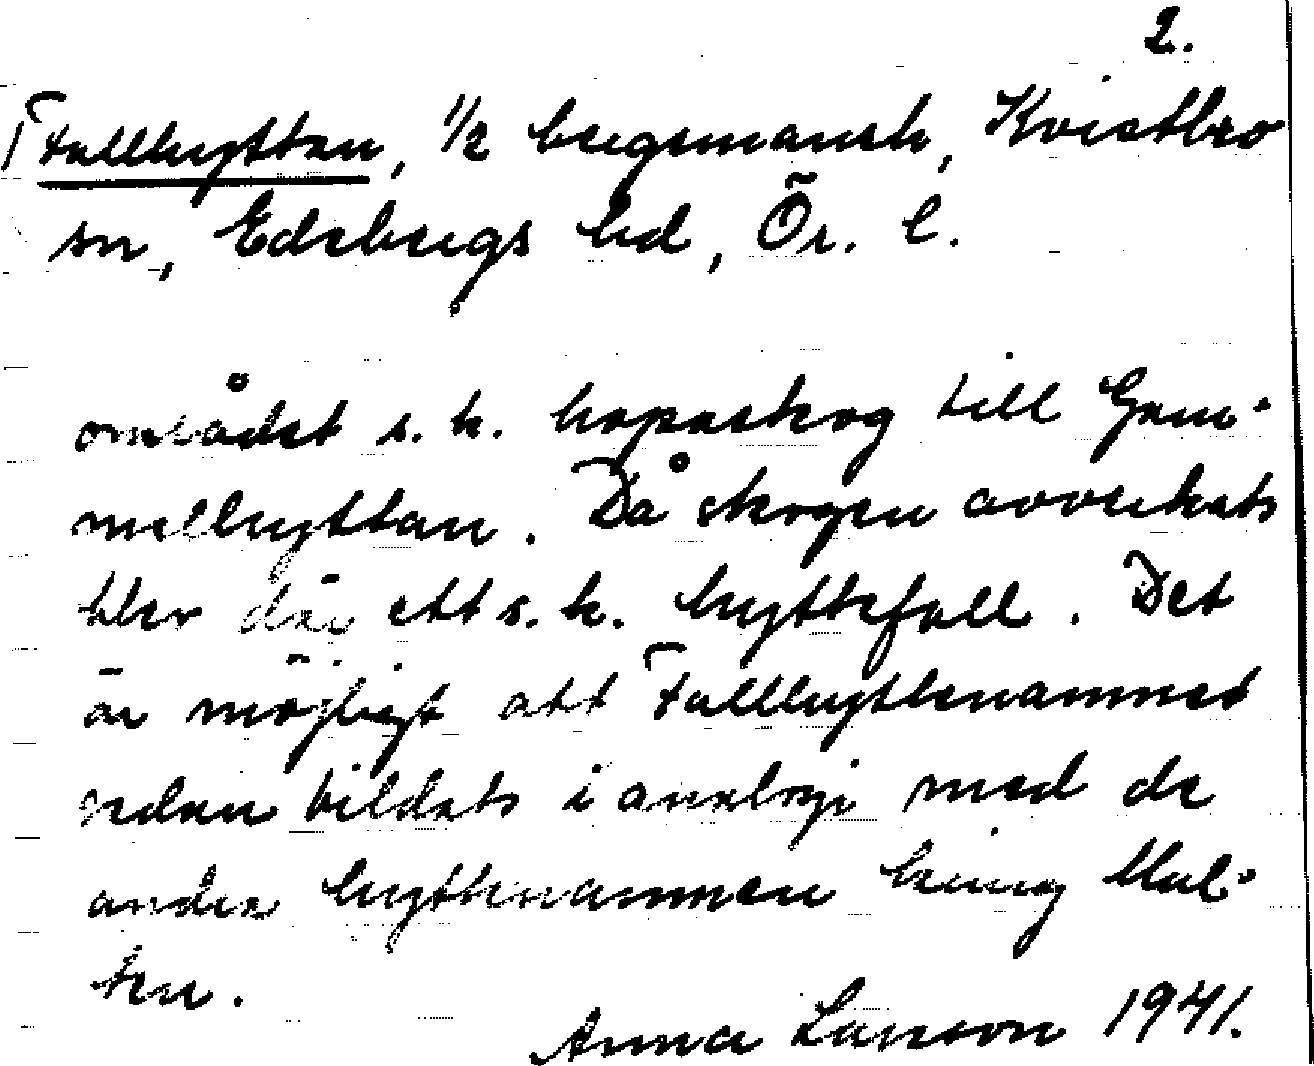 2.
Fallhyttan, 1/2 bergsmansh, Kvistbro
sn, Edsbergs hd, Ör. l.
området s.k. kopaskog till Gam-
melhyttan. Då skogen avverkats
blev där ett s.k. hyttefall. Det
är möjligt att Fallhyttenamnet
sedan bildats i analogi med de
andra hyttnamnen kring Mul-
len.
Anna Larsson 1941.